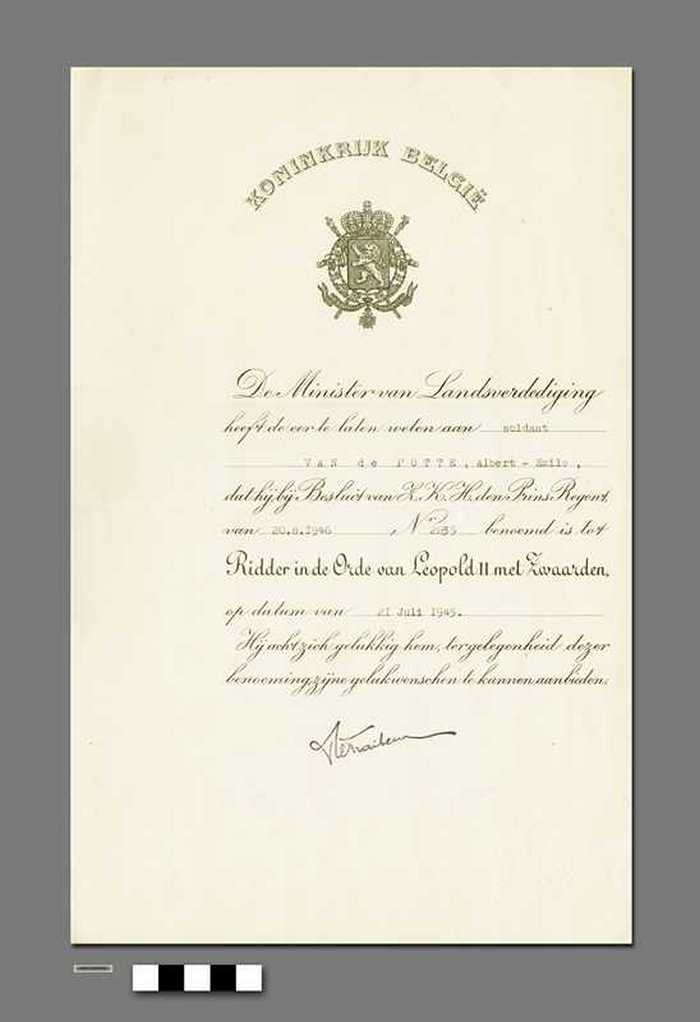 KONINKRIJK BELGIË
De Minister van Landsverdediging
heeft de eer te laten weten aan soldaat
VAN de POTTE, Albert - Emile,
dat hij bij Besluit van Z.K.H. den Prins Regent,
van 20.8.1946 Nr 2235 benoemd is tot
Ridder in de Orde van Leopold II met Zwaarden,
op datum van 21 Juli 1945.
Hij acht zich gelukkig hem, ter gelegenheid dezer
benoeming zijne gelukwenschen te kunnen aanbieden.